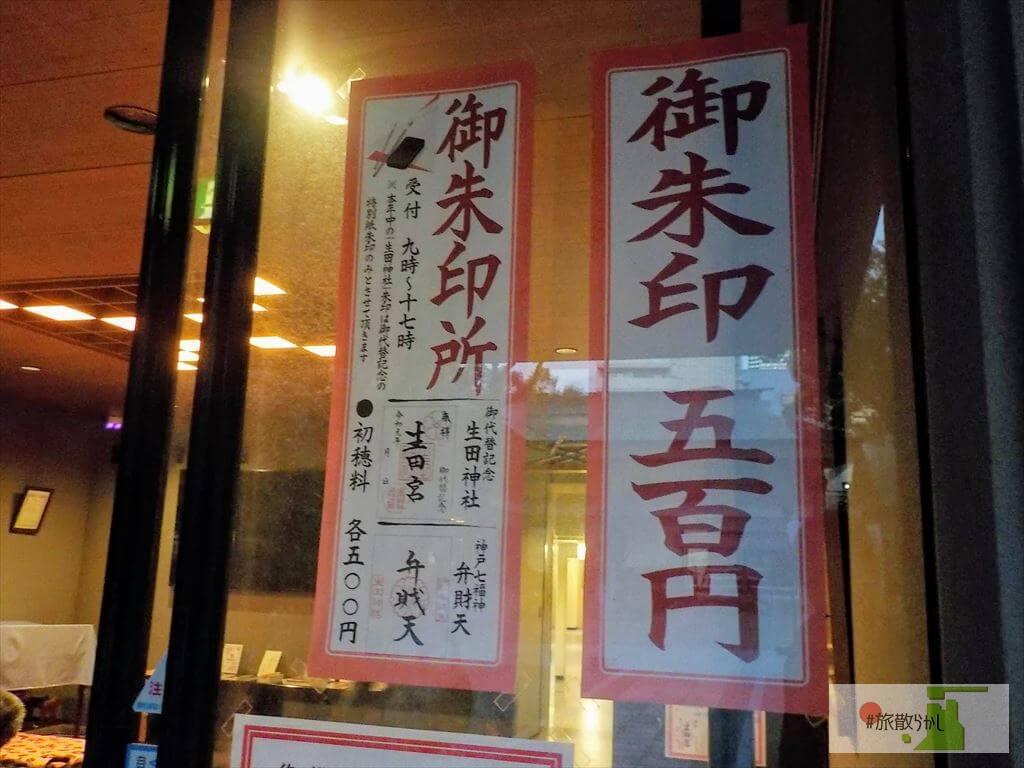 御朱印 五百円
御朱印所
受付 九時〜十七時
※本年中の「生田神社」朱印は御代替記念の
特別紙朱印のみとさせて頂きます
御代替記念
生田神社
奉拝
生田宮
御代替記念
令和元年 月 日
神戸七福神
弁財天
弁財天
●初穂料 各五〇〇円
注
#旅散らかし